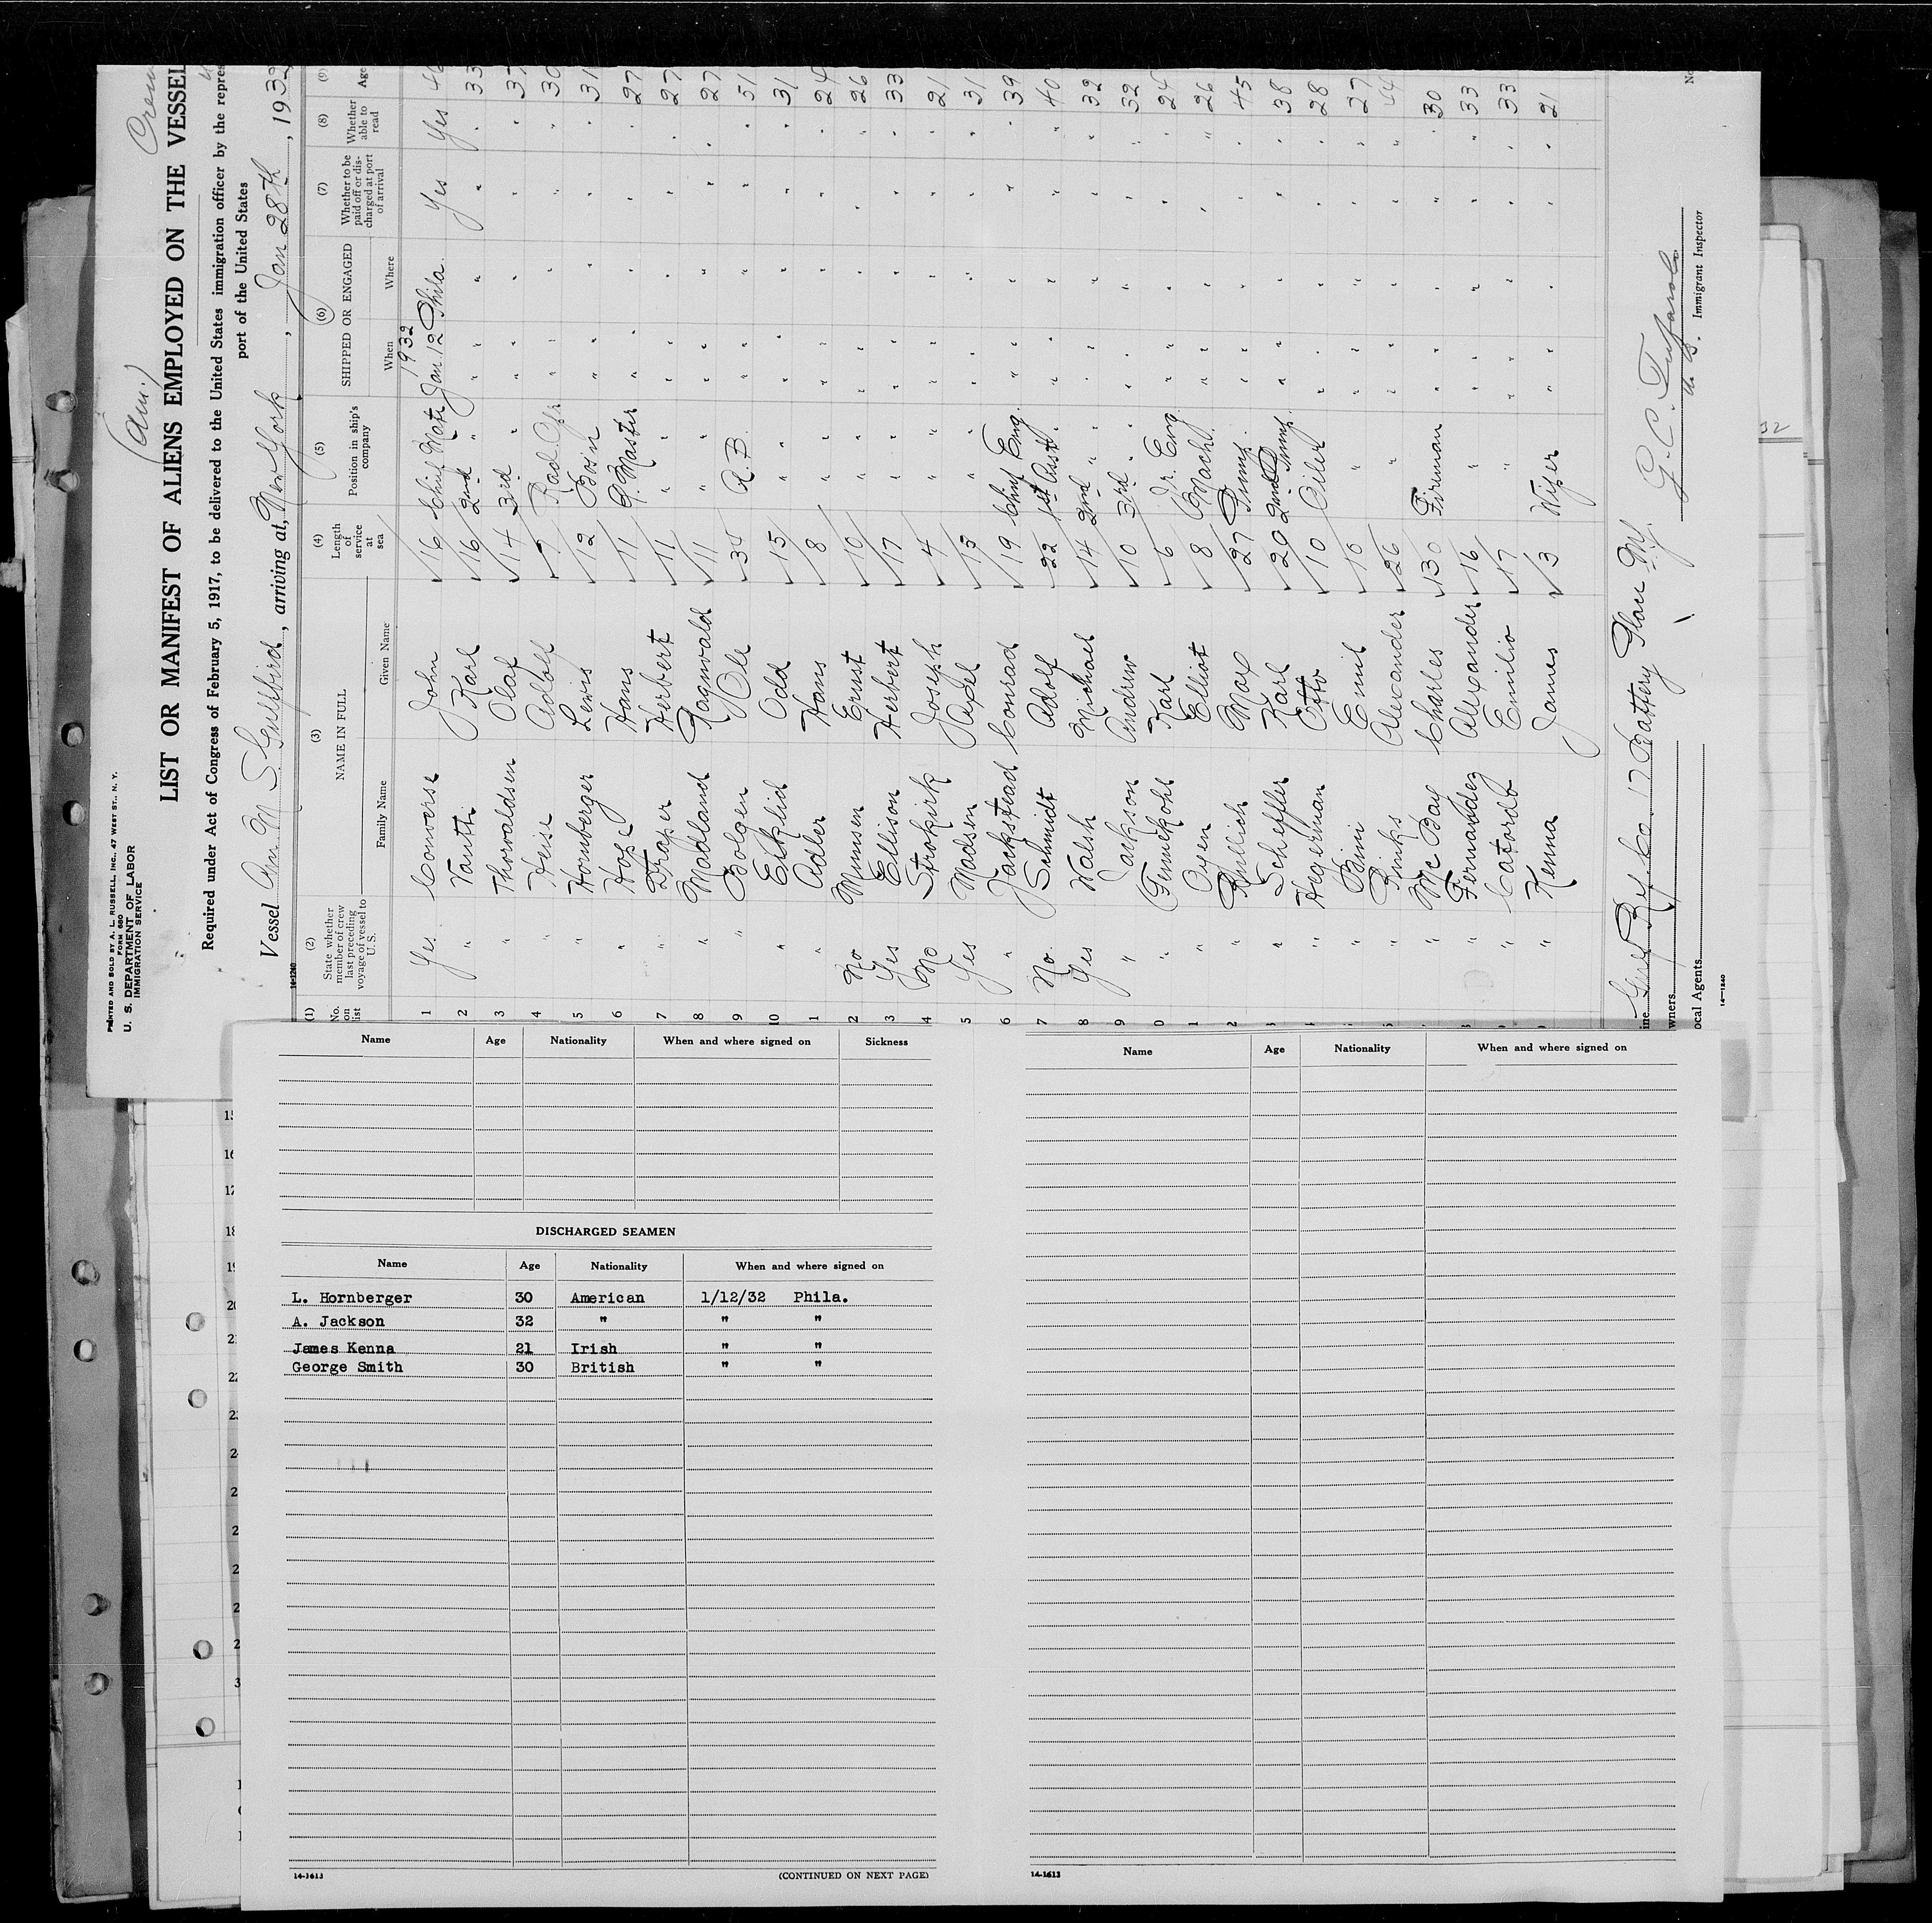 (Am.)
Crew
PRINTED AND SOLD BY A. L. RUSSELL, INC., 47 WEST ST., N. Y.
FORM 680
U. S. DEPARTMENT OF LABOR
IMMIGRATION SERVICE
LIST OR MANIFEST OF ALIENS EMPLOYED ON THE VESSEL
Required under Act of Congress of February 5, 1917, to be delivered to the United States immigration officer by the repres
port of the United States
Vessel Am. M. S. Gulfbird, arriving at, New York, Jan 28th, 1932
(1) (2) (3) (4) (5) (6) (7) (8) (9)
No. on list State whether member of crew last preceding voyage of vessel to U. S. NAME IN FULL Family Name Given Name Length of service at sea Position in ship's company SHIPPED OR ENGAGED When Where Whether to be paid off or discharged at port of arrival Whether able to read Age
1932
1 Yes Converse John 16 Chief Mate Jan. 12 Phila. Yes Yes 46
2 " Vantti Karl 16 2nd " " " " " " 33
3 " Thorvaldsen Olaf 14 3rd " " " " " " 37
4 " Heise Adolf 7 Rad. Opr " " " " " 30
5 " Hornberger Lewis 12 Bos'n " " " " " 31
6 " Hope Hans 11 Q. Master " " " " " 27
7 " Draper Herbert 11 " " " " " " 27
8 " Madland Ragnwald 11 " " " " " " 27
9 " Bolgen Ole 30 A. B. " " " " " 51
10 " Eiklid Odd 15 " " " " " " 31
1 " Adler Hans 8 " " " " " " 24
2 No Munsen Ernst 10 " " " " " " 26
3 Yes Ellison Herbert 17 " " " " " " 33
4 No Strokirk Joseph 4 " " " " " " 21
5 Yes Madsen Axel 13 " " " " " " 31
6 " Jackstead Conrad 19 Chief Eng. " " " " " 39
7 No. Schmidt Adolf 22 1st Asst. " " " " " 40
8 Yes Walsh Michael 14 2nd " " " " " " 32
9 " Jackson Andrew 10 3rd " " " " " " 32
0 " Finnekohl Karl 6 Jr. Eng " " " " " 24
1 " Oyen Elliot 8 Machl. " " " " " 26
2 " Brillich Max 27 Pump. " " " " " 45
3 " Scheffler Karl 20 2nd Pump. " " " " " 38
" Hegerman Otto 10 Oiler " " " " " 28
" Bini Emil 10 " " " " " " 27
" Pinks Alexander 26 " " " " " " 44
" McBay Charles 13 Fireman " " " " " 30
8 " Fernandez Alexander 16 " " " " " " 33
" Catordo Emilio 17 " " " " " " 33
" Kenna James 3 Wiper " " " " " 21
ine Gulf Ref. Co. 17 Battery Place N.Y.
wners
ocal Agents
G. C.
Immigrant Inspector
No
14—1240
32
Name Age Nationality When and where signed on Sickness
DISCHARGED SEAMEN
Name Age Nationality When and where signed on
L. Hornberger 30 American 1/12/32 Phila.
A. Jackson 32 " " "
James Kenna 21 Irish " "
George Smith 30 British " "
14-1613 (CONTINUED ON NEXT PAGE)
Name Age Nationality When and where signed on
14-1613